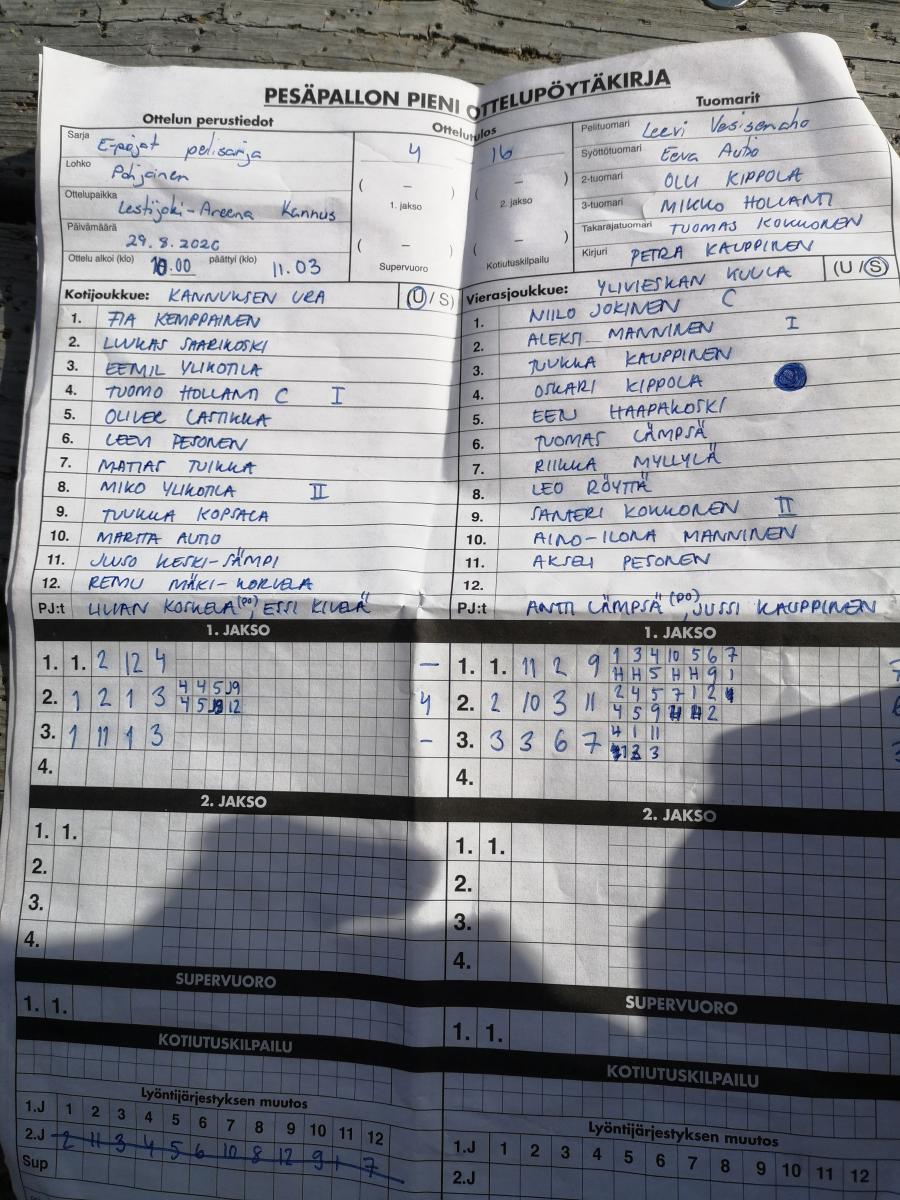 PESÄPALLON PIENI OTTELUPÖYTÄKIRJA
Ottelun perustiedot
Ottelutulos
Tuomarit
Sarja E-pojat pelisarja
Lohko Pohjoinen
Ottelupaikka Lestijoki-Areena Kannus
Päivämäärä 29.8.2020
Ottelu alkoi (klo) 10.00 päättyi (klo) 11.03
4 16
( – ) ( – )
1. jakso 2. jakso
( – ) ( – )
Supervuoro Kotiutuskilpailu
Pelituomari Leevi Vesisenaho
Syöttötuomari Eeva Autio
2-tuomari OLLI KIPPOLA
3-tuomari MIKKO HOLLANTI
Takarajatuomari TUOMAS KOKKONEN
Kirjuri PETRA KAUPPINEN
Kotijoukkue: KANNUKSEN URA (U / S)
1. PIA KEMPPAINEN
2. LUUKAS SAARIKOSKI
3. EEMIL YLIKOTILA
4. TUOMO HOLLANTI C I
5. OLIVER LASTIKKA
6. LEEVI PESONEN
7. MATIAS TUIKKA
8. MIKO YLIKOTILA II
9. TUUKKA KOPSALA
10. MARTTA AUTIO
11. JUUSO KESKI-SÄMPI
12. REMU MÄKI-KORVELA
PJ:t LILIAN KOSKELA (PO), ESSI KIVELÄ
Vierasjoukkue: YLIVIESKAN KUULA (U / S)
1. NIILO JOKINEN C
2. ALEKSI MANNINEN I
3. TUUKKA KAUPPINEN
4. OSKARI KIPPOLA
5. EELI HAAPAKOSKI
6. TUOMAS LÄMPSÄ
7. RIIKKA MYLLYLÄ
8. LEO RÖYTTÄ
9. SANTERI KOKKONEN II
10. AINO-ILONA MANNINEN
11. AKSELI PESONEN
12.
PJ:t ANTTI LÄMPSÄ (PO), JUSSI KAUPPINEN
1. JAKSO
1. 1. 2 12 4 –
2. 1 2 1 3 4 4 5 9 4
4 5 12
3. 1 11 1 3 –
4.
2. JAKSO
1. 1.
2.
3.
4.
SUPERVUORO
1. 1.
KOTIUTUSKILPAILU
Lyöntijärjestyksen muutos
1.J 1 2 3 4 5 6 7 8 9 10 11 12
2.J 2 11 3 4 5 6 10 8 12 9 1 7
Sup
1. JAKSO
1. 1. 11 2 9 1 3 4 10 5 6 7
H H 5 H H 9 1
2. 2 10 3 11 2 4 5 7 1 2
4 5 9 H H 2
3. 3 3 6 7 4 1 11
3
4.
2. JAKSO
1. 1.
2.
3.
4.
SUPERVUORO
1. 1.
KOTIUTUSKILPAILU
Lyöntijärjestyksen muutos
1.J 1 2 3 4 5 6 7 8 9 10 11 12
2.J